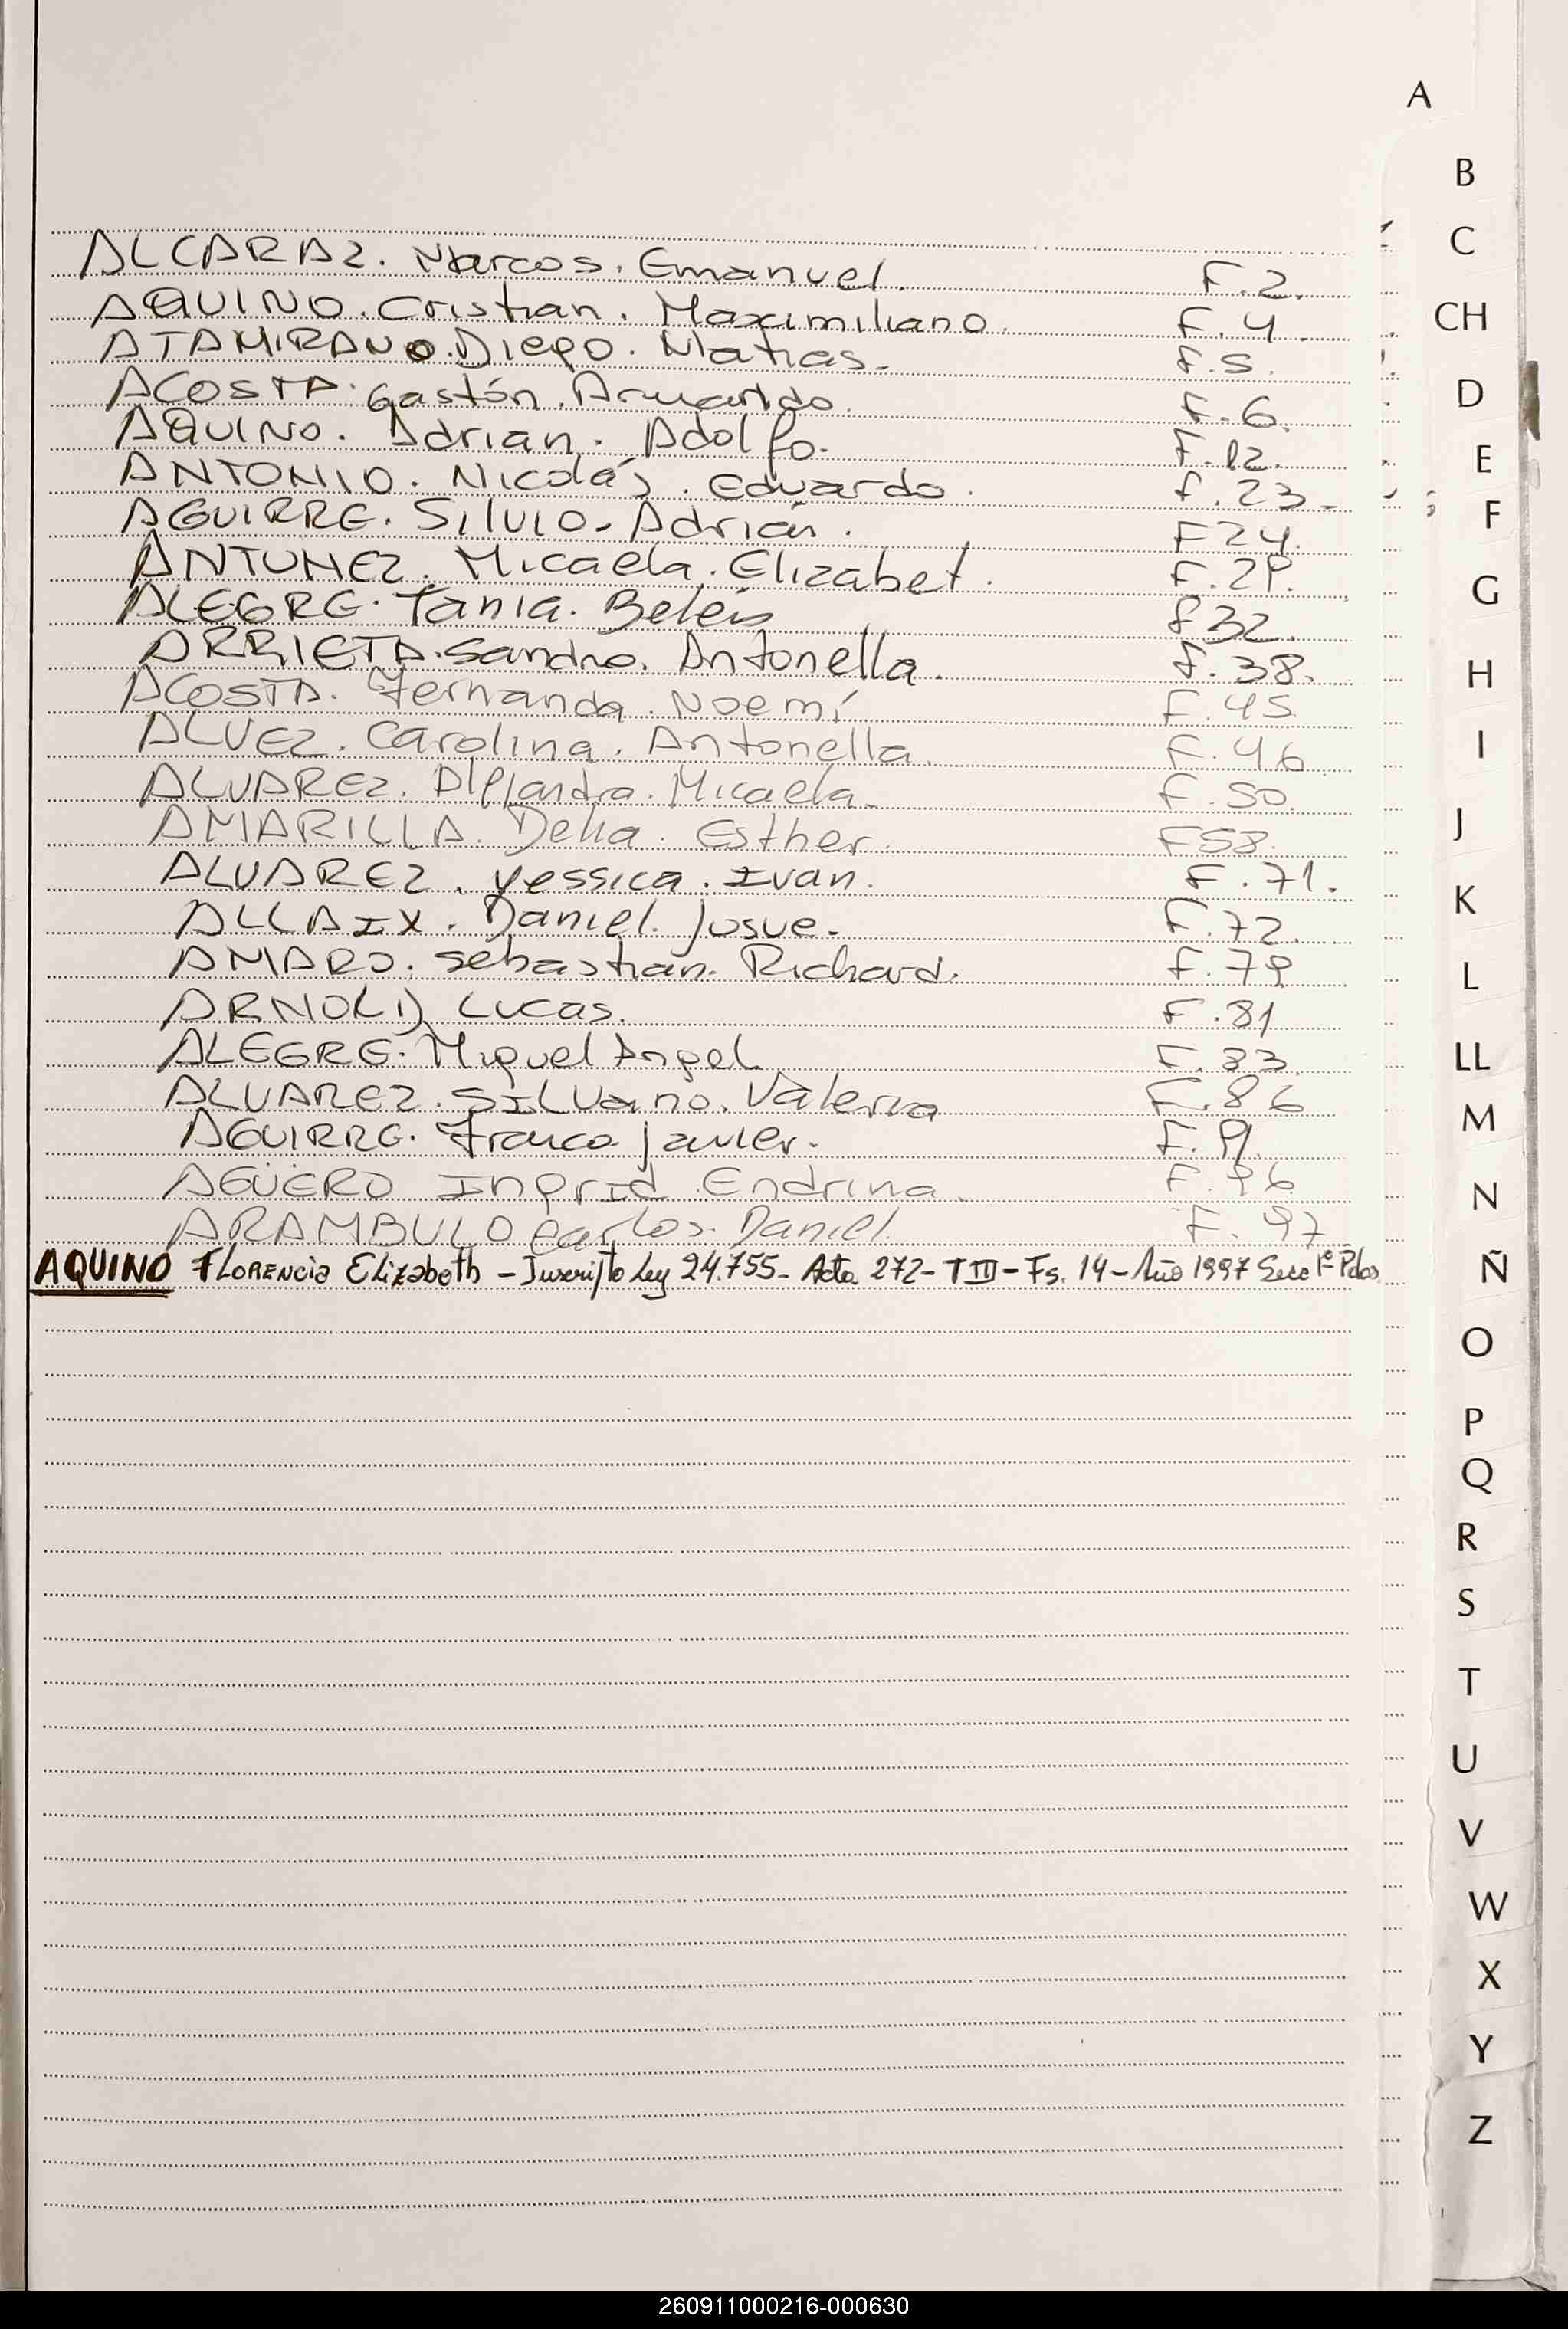 A
B
C
CH
D
E
F
G
H
I
J
K
L
LL
M
N
Ñ
O
P
Q
R
S
T
U
V
W
X
Y
Z
ALCARAZ. Marcos. Emanuel. F.2.
AQUINO. Cristian. Maximiliano. F.4.
ATAMIRANO. Diego. Matias. F.5.
ACOSTA. Gastón. Armando. F.6.
AQUINO. Adrian. Adolfo. F.12.
ANTONIO. Nicolás. Eduardo. F.23.
AGUIRRE. Silvio. Adrián. F24.
ANTUNEZ. Micaela. Elizabet. F.29.
ALEGRE. Tania. Belén F32.
ARRIETA. Sandra. Antonella. F.38.
ACOSTA. Fernanda. Noemí F.45.
ALVEZ. Carolina. Antonella. F.46
ALVAREZ. Alejandra. Micaela. F.50.
AMARILLA. Delia. Esther. F58.
ALVAREZ. Yessica. Ivan. F.71.
ALLAIX. Daniel. Josue. F.72.
AMARO. Sebastian. Richard. F.79
ARNOLD Lucas. F.81
ALEGRE. Miguel Angel F.83.
ALVAREZ. Silvano. Valeria F.86
AGUIRRE. Franco Javier. F.91.
AGÜERO Ingrid Endrina. F.96
ARAMBULO Carlos. Daniel. F.97
AQUINO Florencia Elizabeth - Inscripto Ley 24.755- Acta 272- T III - Fs. 14 - Año 1997 Secc 1ª Pdas
260911000216-000630